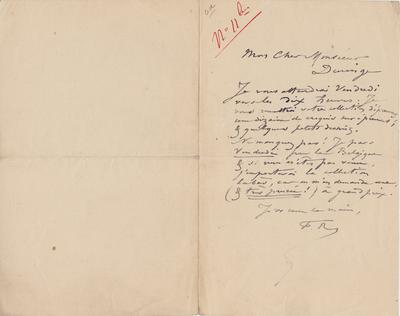 N° 11
Mon Cher Monsieur
Je vous attendrai Vendredi
vers les dix heures. Je
vous mettrai votre collection
une dizaine de croquis
& quelques petits dessins.
Ne manquez pas! Je pars
Vendredi pour la Belgique
& si vous n'êtes pas venu
j'emporterai la collection
car on m'en demande une,
(& très pressée!) à grand prix.
Je vous serre la main,
F. R.